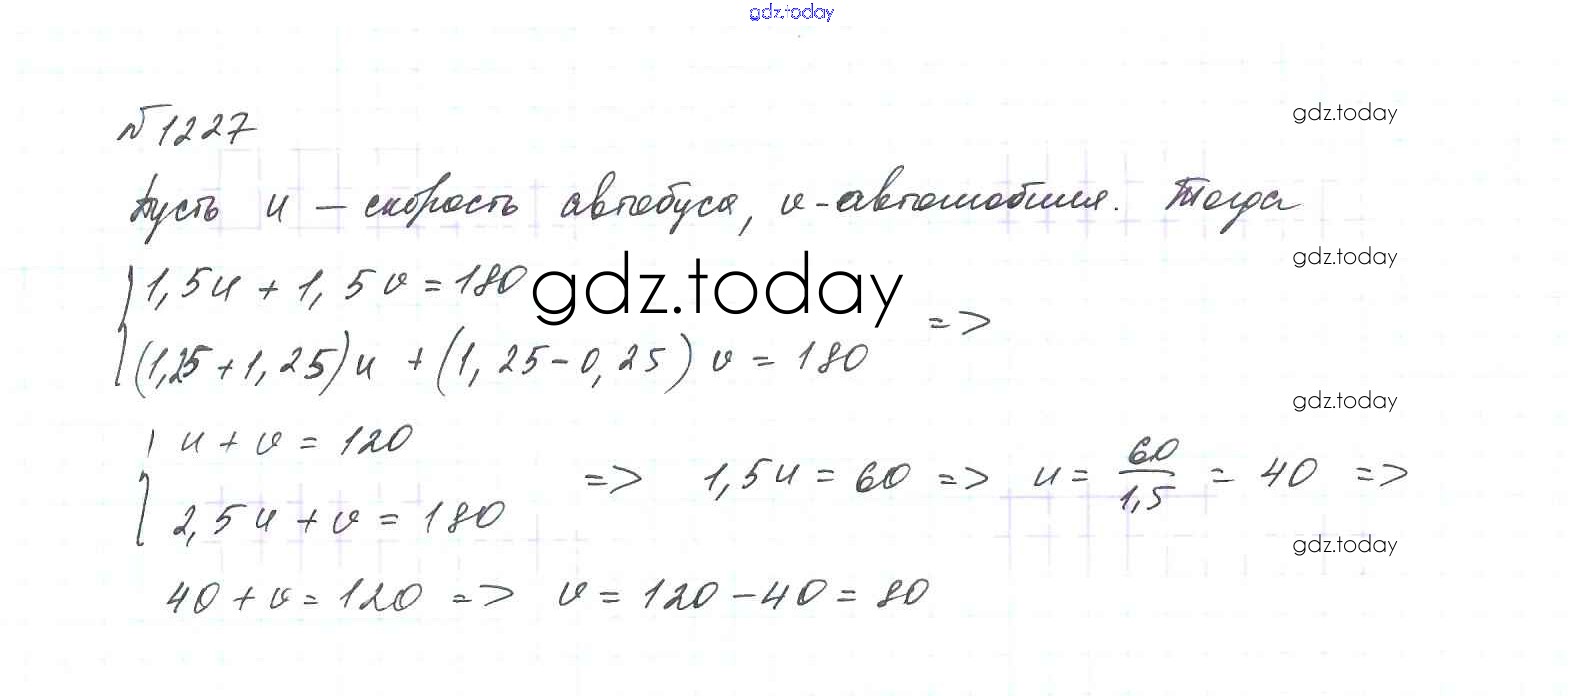 gdz.today
№1227
gdz.today
Пусть u – скорость автобуса, v - автомобиля. Тогда
gdz.today
1,5u + 1,5v = 180
gdz.today
(1,25 + 1,25)u + (1,25 - 0,25)v = 180 =>
gdz.today
u + v = 120
2,5u + v = 180 => 1,5u = 60 => u = 60/1,5 = 40 =>
gdz.today
40 + v = 120 => v = 120 - 40 = 80